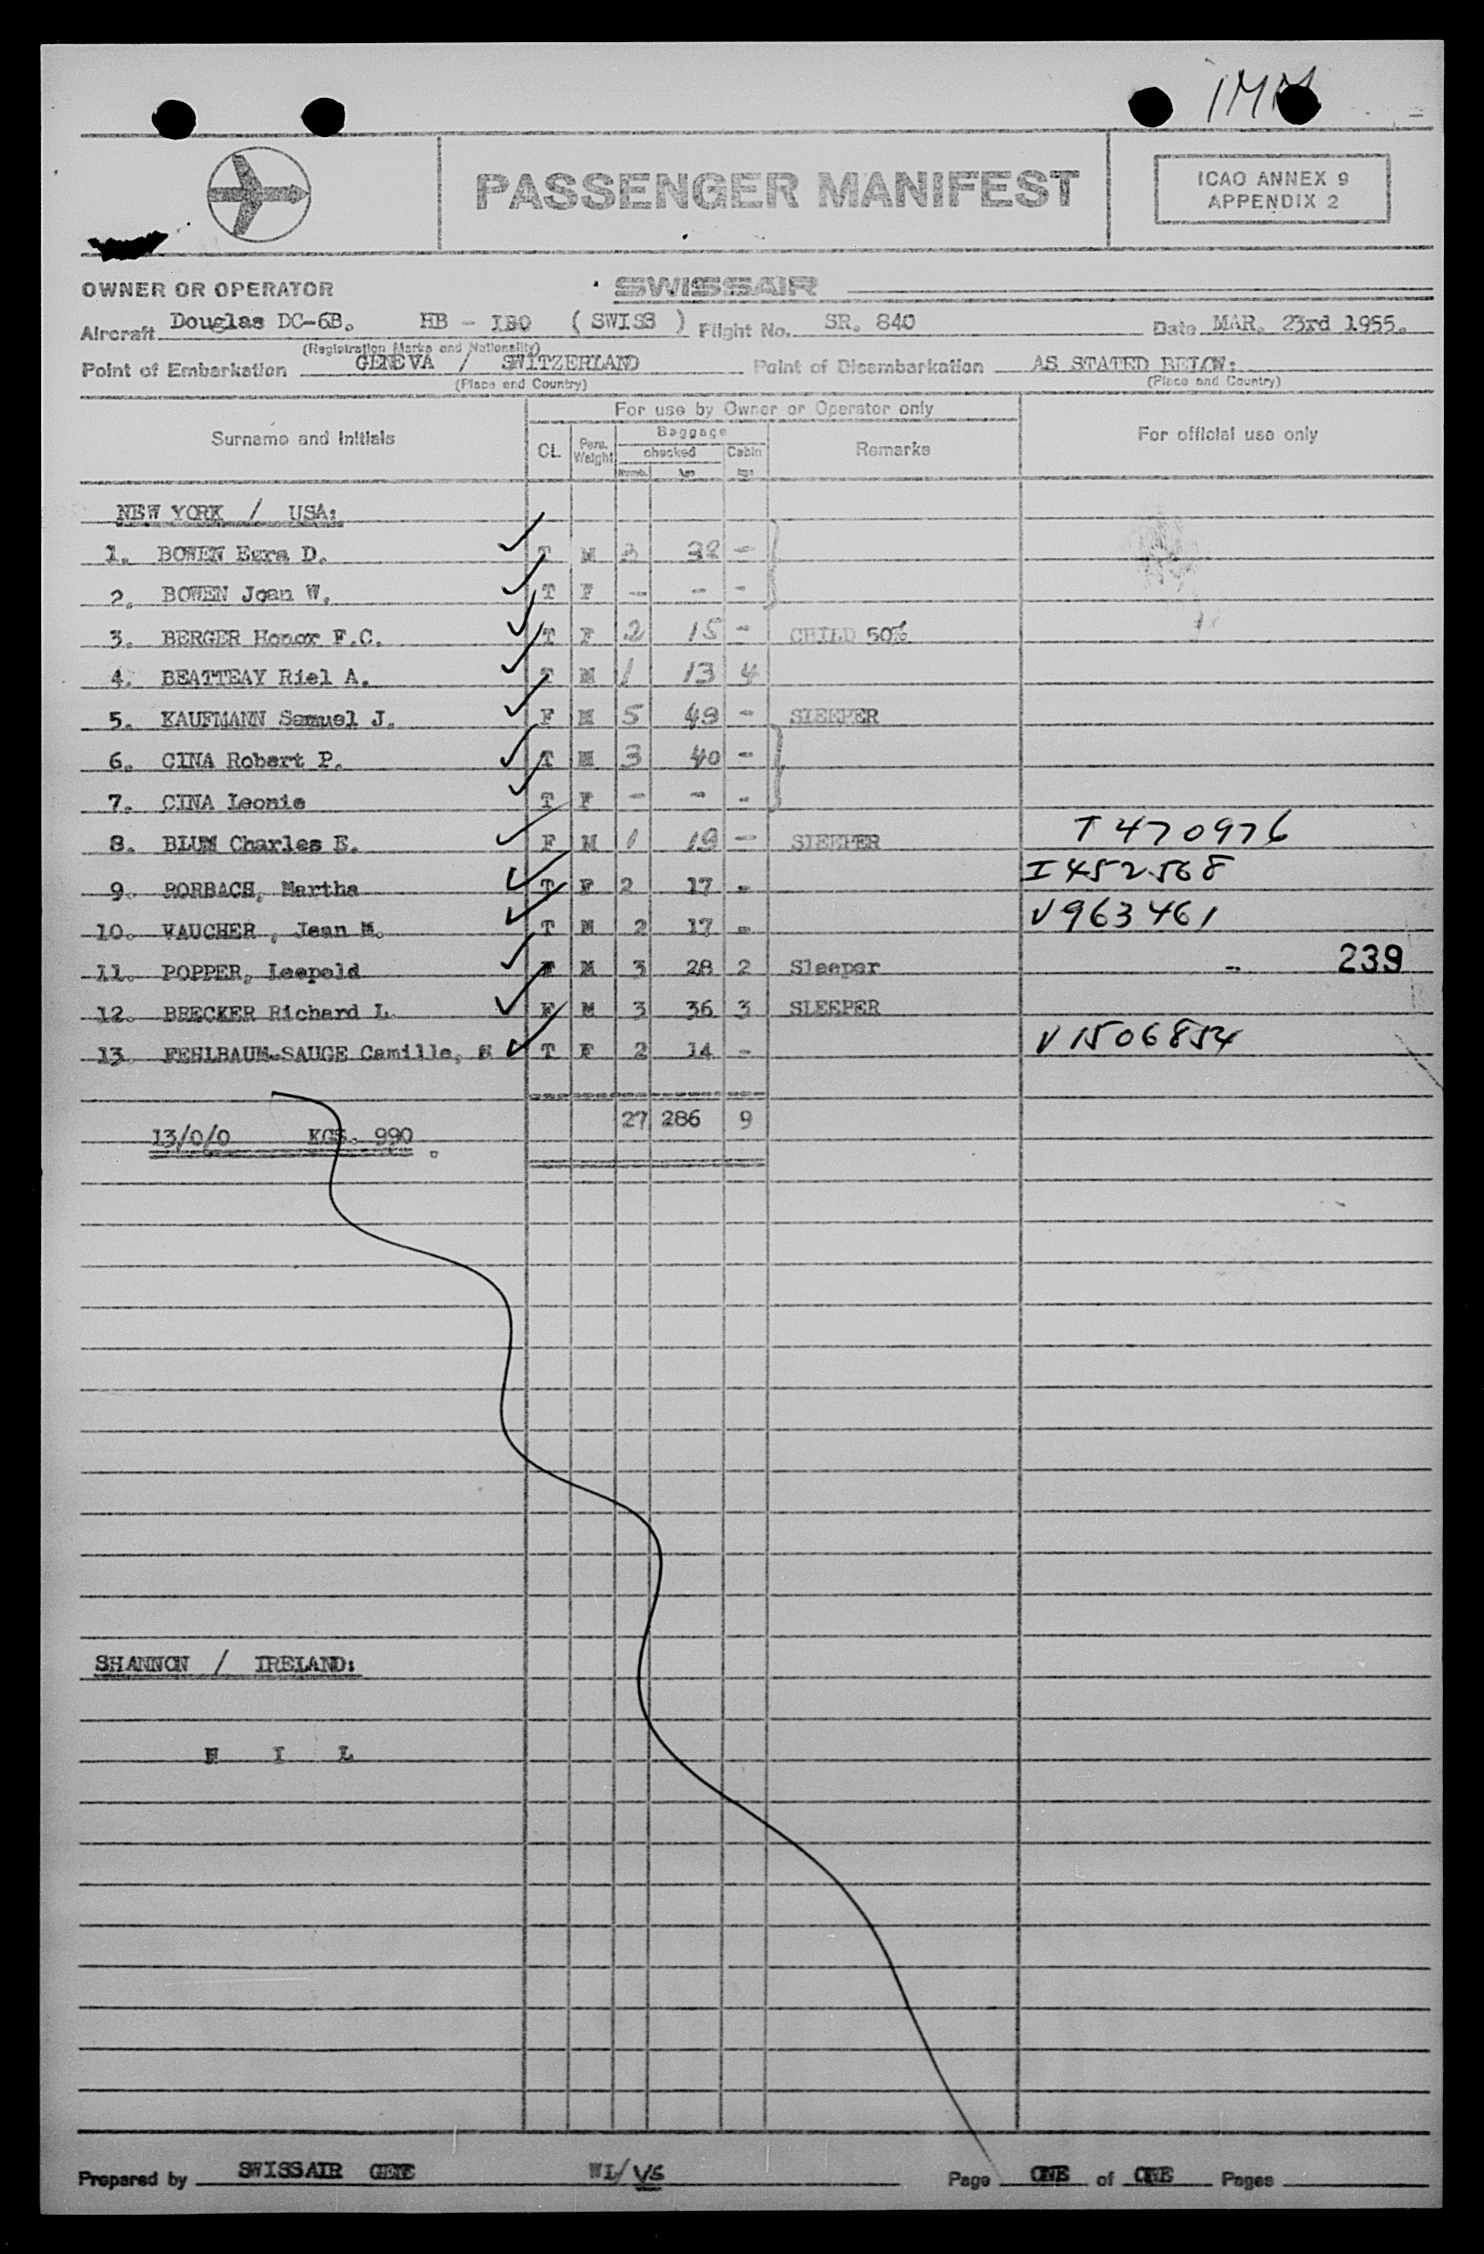 IMM
PASSENGER MANIFEST
ICAO ANNEX 9
APPENDIX 2
OWNER OR OPERATOR SWISSAIR
Aircraft Douglas DC-6B. HB - IBO ( SWISS ) Flight No. SR. 840 Date MAR. 23rd 1955.
(Registration Marks and Nationality)
Point of Embarkation GENEVA / SWITZERLAND Point of Disembarkation AS STATED BELOW:
(Place and Country) (Place and Country)
For use by Owner or Operator only
Surname and Initials CL. Pers. Weight Baggage Remarks For official use only
checked Cabin
Numb. kgs kgs
NEW YORK / USA:
1. BOWEN Ezra D. T M 3 38 -
2. BOWEN Joan W. T F - - -
3. BERGER Honor F.C. T F 2 15 - CHILD 50%
4. BEATTEAY Riel A. T M 1 13 4
5. KAUFMANN Samuel J. F M 5 49 - SLEEPER
6. CINA Robert P. T M 3 40 -
7. CINA Leonie T F - - -
8. BLUM Charles E. F M 1 19 - SLEEPER I 470976
9. RORBACH, Martha T F 2 17 - I 452568
10. VAUCHER , Jean M. T M 2 17 - V 963461
11. POPPER, Leopold M 3 28 2 Sleeper - 239
12. BRECKER Richard L. F M 3 36 3 SLEEPER
13. FEHLBAUM-SAUGE Camille, T F 2 14 - V 1506854
27 286 9
13/0/0 KGS. 990 .
SHANNON / IRELAND:
N I L
Prepared by SWISSAIR GENE WL/VS Page ONE of ONE Pages